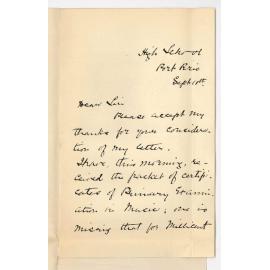 High School
Port Pirie
Sept 10th.
Dear Sir
Please accept my
thanks for your considera-
tion of my letter.
I have, this morning, re-
ceived the packet of certifi-
cates of Primary Examin-
ation in Music; one is
missing that for Millicent